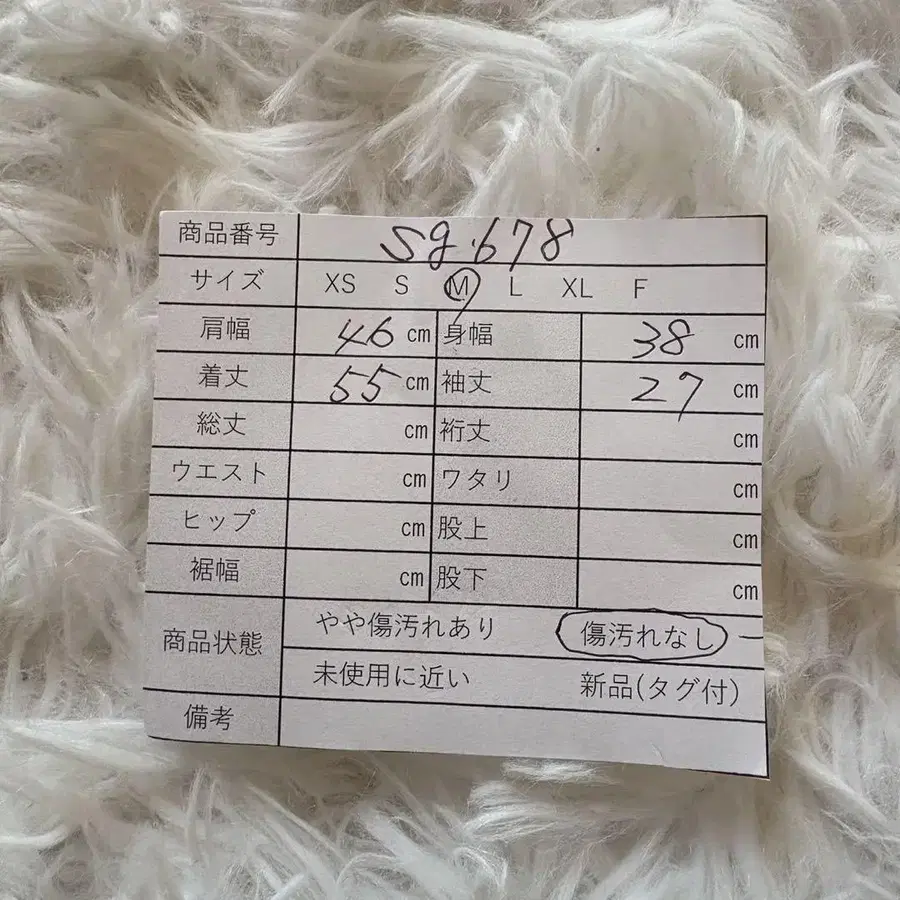 商品番号 sg.678
サイズ XS S M L XL F
肩幅 46 cm 身幅 38 cm
着丈 55 cm 袖丈 27 cm
総丈 cm 裄丈 cm
ウエスト cm ワタリ cm
ヒップ cm 股上 cm
裾幅 cm 股下 cm
商品状態 やや傷汚れあり 傷汚れなし
未使用に近い 新品(タグ付)
備考